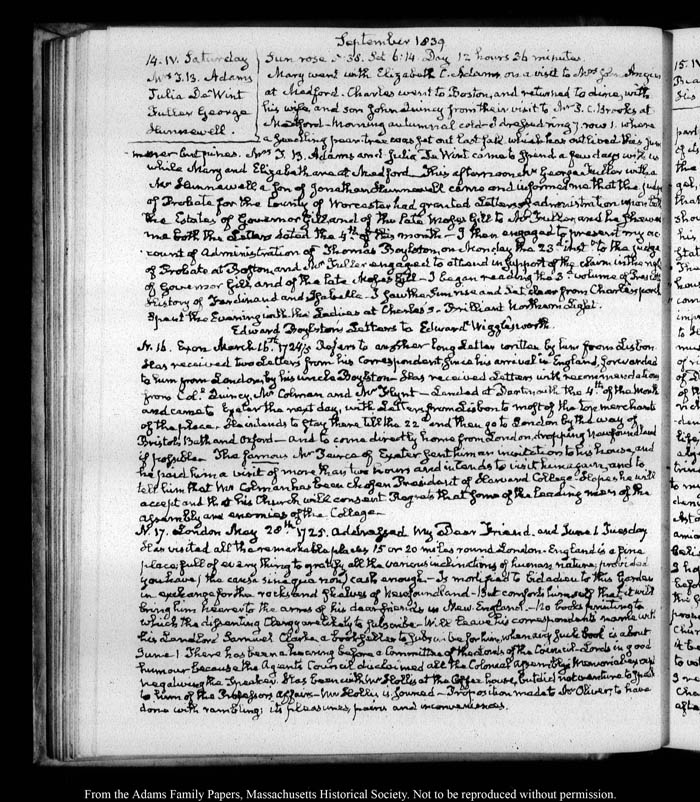 September 1839
14. IV. Saturday
Mrs T. B. Adams
Julia DeWint
Fuller George
Hunnewell.
Sun rose 5:38. Set 6:14. Day 12 hours 36 minutes.
Mary went with Elizabeth C. Adams on a visit to Mrs John Angier
at Medford. Charles went to Boston, and returned to dine, with
his wife, and son John Quincy from their visit to Mr P. C. Brooks at
Medford - Morning autumnal cold - I dressed ring 7. row 1. where
a seedling pear-tree was set out last fall which has outlived this sum
mer but pines. Mrs T. B. Adams and Julia De Wint came to spend a few days with us
while Mary and Elizabeth are at Medford. This afternoon Mr George Fuller with a
Mr Hunnewell a son of Jonathan Hunnewell came and informed me that the judge
of Probate for the County of Worcester had granted Letters of administration upon both
the Estates of Governor Gill and of the late Moses Gill to Mr Fuller and he shewed
me both the Letters dated the 4th of this month - I then engaged to present my ac
count of Administration of Thomas Boylston, on Monday the 23d inst to the judge
of Probate at Boston, and Mr Fuller engaged to attend in support of the claim in the
of Governor Gill, and of the late Moses Gill - I began reading the 3d volume of Prescott's
History of Ferdinand and Isabella. I saw the Sun rise and Set clear from Charles's
Spent the Evening with the Ladies at Charles's. Brilliant Northern Light.
Edward Boylston's Letters to Edward Wigglesworth.
N. 16. Exon March 16th 1724/5 Refers to another long Letter written by him from Lisbon.
Has received two Letters from his Correspondent since his arrival in England, forwarded
to him from London by his uncle Boylston - Has received Letters with recommendations
from Col. Quincy, Mr Colman and Mr Flynt - Landed at Dartmouth the 4th of the Month
and came to Exeter the next day, with Letters from Lisbon to most of the Top merchants
of the place. He intends to stay there till the 22d and then go to London by the way of
Bristol, Bath and Oxford - and to come directly home from London, dropping Newfoundland
if possible. The famous Mr Pearce of Exeter sent him an invitation to his house, and
he paid him a visit of more than two hours and intends to visit him again, and to
tell him that Mr Colman has been chosen President of Harvard College. Hopes he will
accept and that his Church will consent Regrets that some of the leading men of the
Assembly are enemies of the College.
N. 17. London May 28th 1725. addressed My Dear Friend. and June 1 Tuesday
Has visited all the remarkable places 15 or 20 miles round London. England is a fine
place, full of every thing to gratify all the various inclinations of human nature, provided
you have, the causa sine qua non, cash enough - Is mortified to bid adieu to this Garden
in exchange for the rocks and flakes of Newfoundland - But comforts himself that it will
bring him nearer to the arms of his dear friends in New England. - No books printing to
which the dissenting Clergy are likely to subscribe - Will leave his correspondent's name with
his Landlord Samuel Clarke a bookseller to subscribe for him, when any such book is about
June 1 There has been a hearing before a Committee of the Lords of the Council - Lords in good
humour because the Agents Council disclaimed all the Colonial Assembly's Memorial
negativing the Speaker. Has been with Mr Hollis at the Coffee house, but did not venture to speak
to him of the Professors affair - Mr Hollis is soured - Proposition made to Dr Oliver, to have
done with rambling; its pleasures, pains and inconveniences.
From the Adams Family Papers, Massachusetts Historical Society. Not to be reproduced without permission.